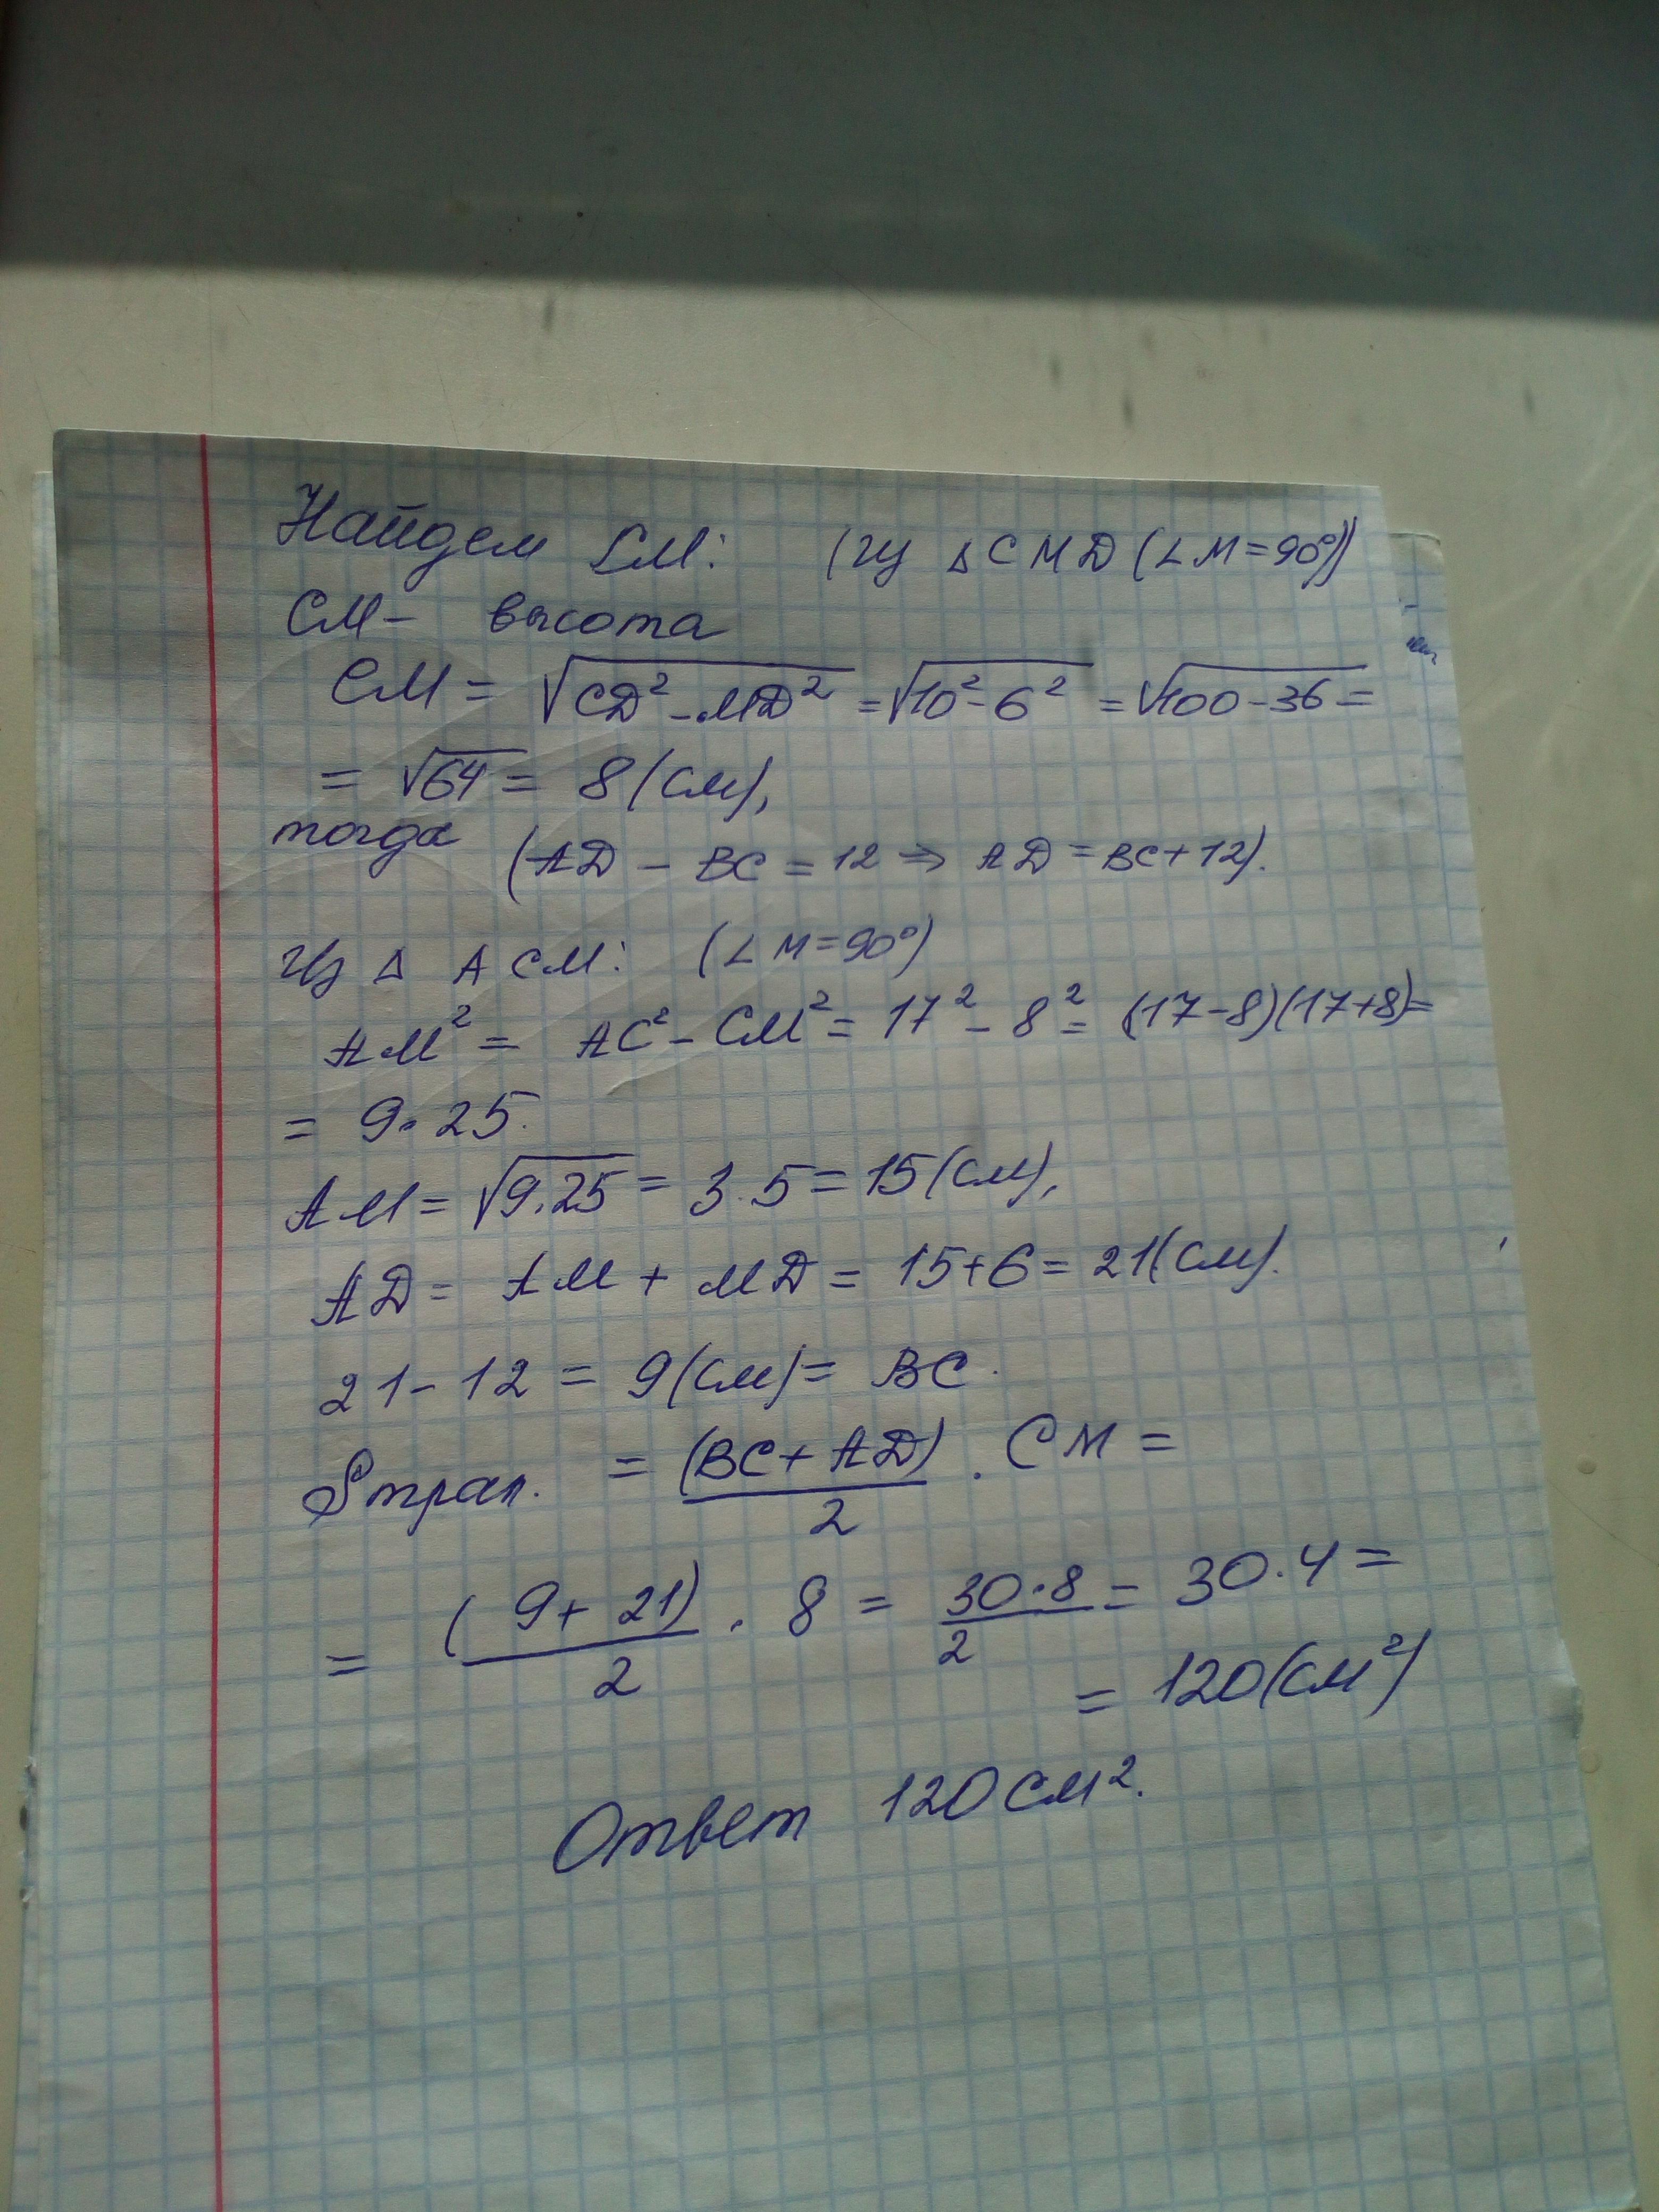 Найдем CM: (Из △CMD (∠M=90°))
CM- высота
CM = √CD²-MD² = √10²-6² = √100-36 =
= √64 = 8(см),
тогда (AD - BC = 12 ⇒ AD = BC+12).
Из △ ACM: (∠M=90°)
AM² = AC²-CM² = 17²-8² = (17-8)(17+8)=
= 9·25.
AM = √9.25 = 3·5 = 15(см),
AD = AM + MD = 15+6 = 21(см).
21-12 = 9(см) = BC.
Sтрап. = (BC+AD)/2 · CM =
= (9+21)/2 · 8 = 30·8/2 = 30·4 =
= 120(см²)
Ответ 120см².